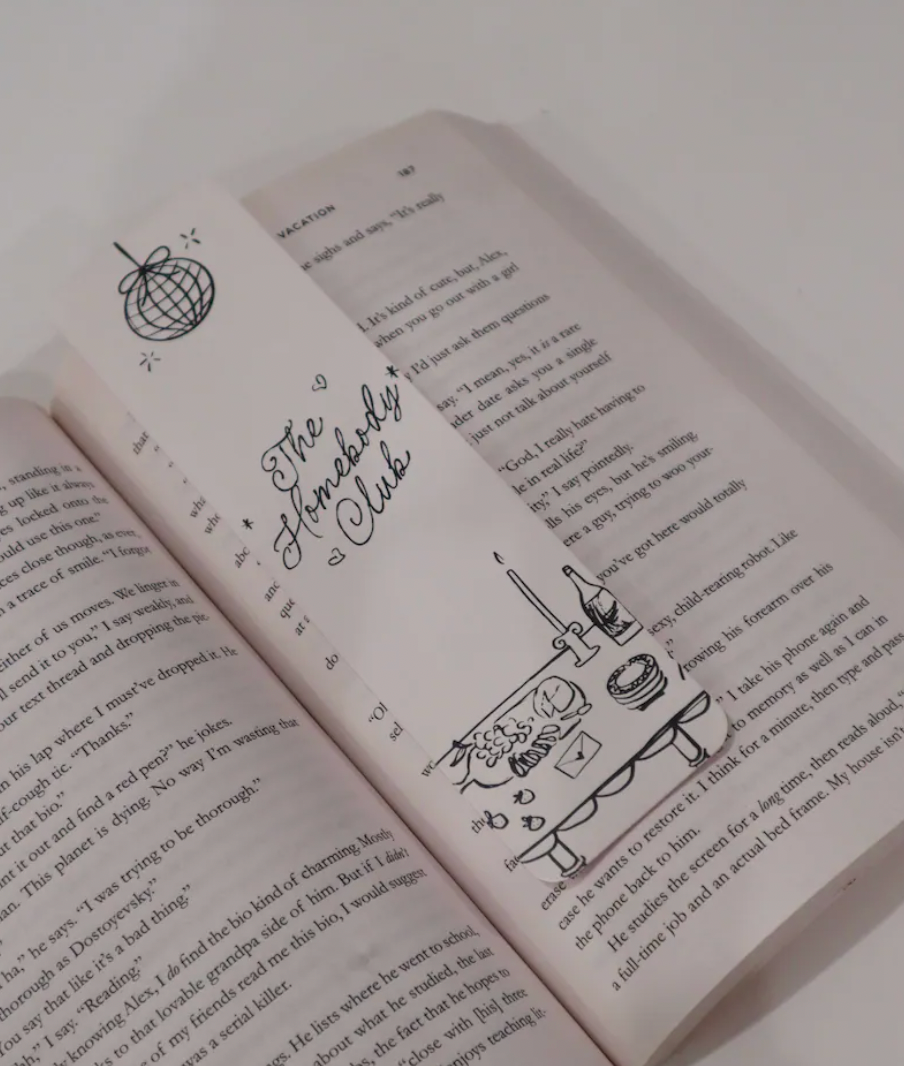 standing in a
g up like it always
es locked onto the
ould use this one."
ces close though, as ever,
a trace of smile. "I forgot
either of us moves. We linger in
ll send it to you," I say weakly, and
our text thread and dropping the pic
n his lap where I must've dropped it. He
lf-cough tic. "Thanks."
ut that bio."
nt it out and find a red pen?" he jokes.
an. This planet is dying. No way I'm wasting that
ha," he says. "I was trying to be thorough."
horough as Dostoyevsky."
You say that like it's a bad thing."
hh," I say. "Reading."
knowing Alex, I do find the bio kind of charming. Mostly
ks to that lovable grandpa side of him. But if I didn't
of my friends read me this bio, I would suggest
was a serial killer.
gs. He lists where he went to school,
about what he studied, the last
the fact that he hopes to
"close with [his] three
enjoys teaching lit-
The
Homebody
Club
VACATION 187
sighs and says, "It's really
It's kind of cute, but, Alex,
when you go out with a girl
I'd just ask them questions
say. "I mean, yes, it is a rare
der date asks you a single
just not talk about yourself
"God, I really hate having to
le in real life?"
ity," I say pointedly.
lls his eyes, but he's smiling.
ere a guy, trying to woo your
you've got here would totally
exy, child-rearing robot. Like
rowing his forearm over his
I take his phone again and
to memory as well as I can in
erase
case he wants to restore it. I think for a minute, then type and pass
the phone back to him.
He studies the screen for a long time, then reads aloud, "
a full-time job and an actual bed frame. My house isn't